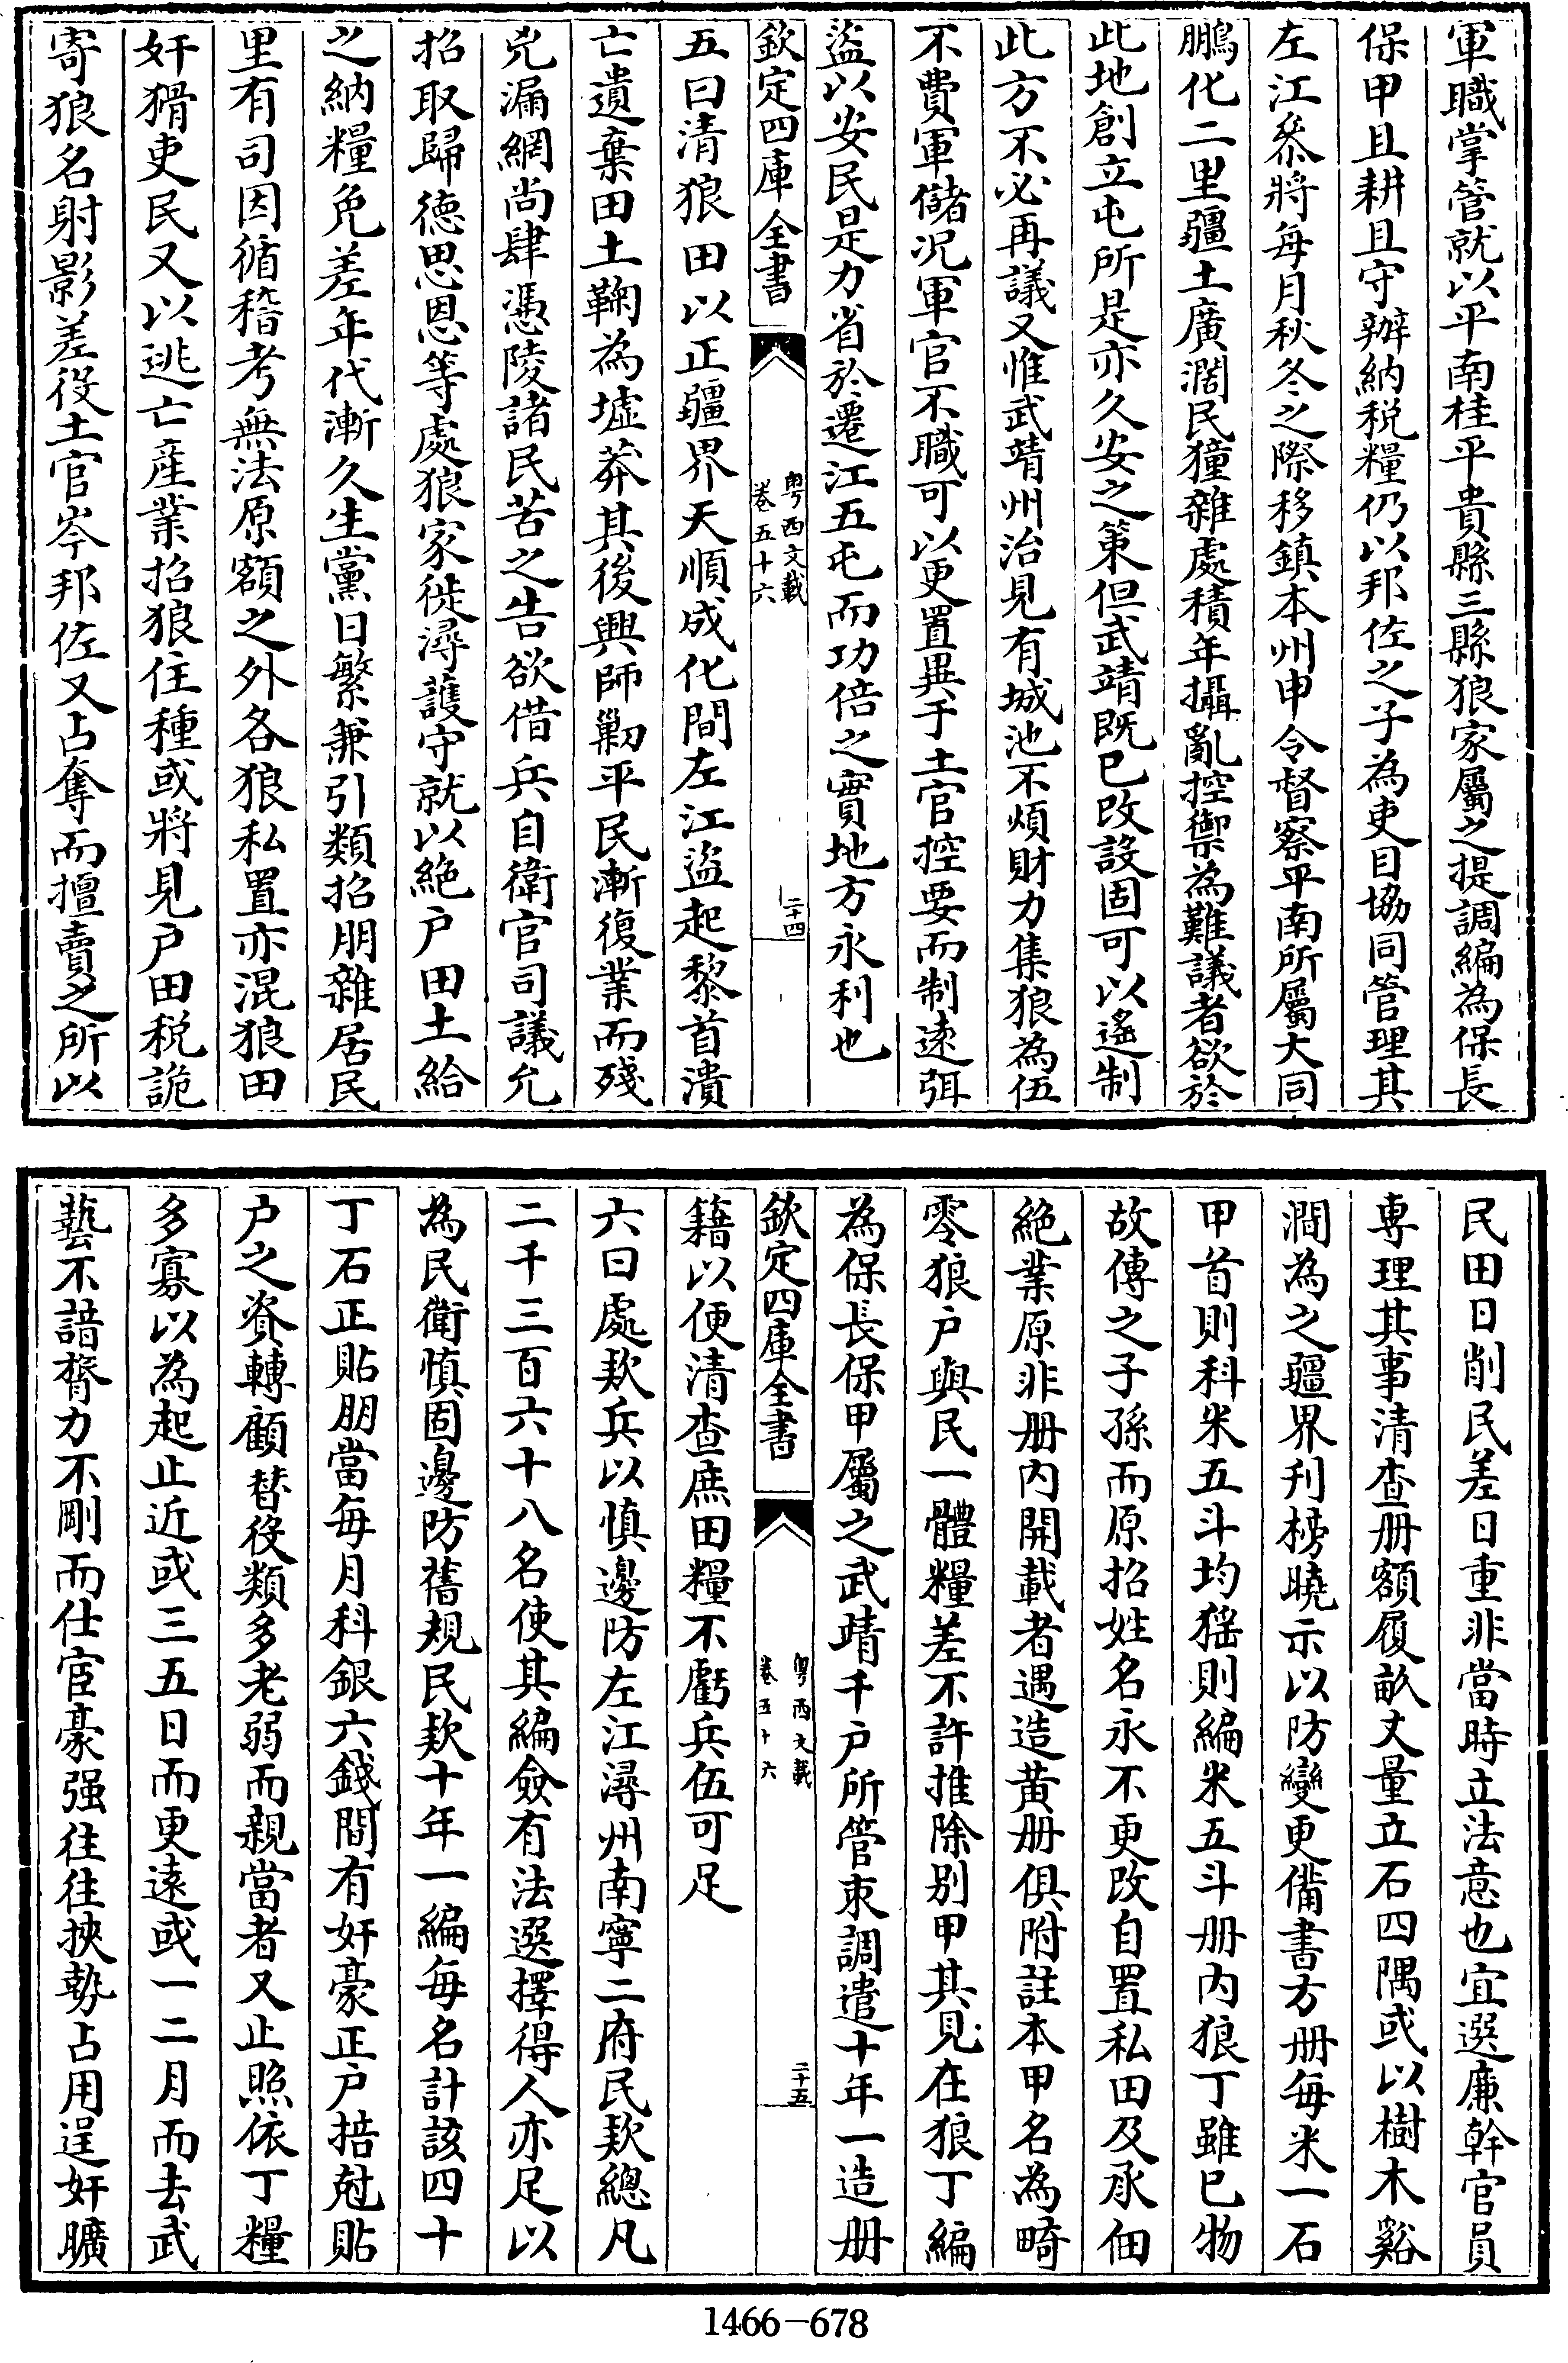 軍職掌管就以平南桂平貴縣三縣狼家屬之提調編為保長
保甲且耕且守辦納税糧仍以邦佐之子為吏目協同管理其
左江叅將每月秋冬之際移鎮本州申令督察平南所屬大同
鵬化二里疆土廣濶民獞雜處積年攝亂控禦為難議者欲於
此地創立屯所是亦久安之策但武靖既已改設固可以遙制
此方不必再議又惟武靖州治見有城池不煩財力集狼為伍
不費軍儲况軍官不職可以更置異于土官控要而制遠弭
盜以安民是力省於遷江五屯而功倍之實地方永利也
欽定四庫全書
粤西文載
卷五十六
二十四
五曰清狼田以正疆界天順成化間左江盜起黎首潰
亡遺棄田土鞠為墟莽其後興師勦平民漸復業而殘
兇漏網尚肆憑陵諸民苦之告欲借兵自衛官司議允
招取歸德思恩等處狼家徙潯護守就以絶户田土給
之納糧免差年代漸久生黨日繁兼引類招朋雜居民
里有司因循稽考無法原額之外各狼私置亦混狼田
奸猾吏民又以逃亡産業招狼住種或將見户田税詭
寄狼名射影差役土官岑邦佐又占奪而擅賣之所以
民田日削民差日重非當時立法意也宜選廉幹官員
専理其事清查册額履畝丈量立石四隅或以樹木谿
澗為之疆界刋榜曉示以防變更備書方册每米一石
甲首則科米五斗均猺則編米五斗册内狼丁雖已物
故傳之子孫而原招姓名永不更改自置私田及承佃
絶業原非册内開載者遇造黄册俱附註本甲名為畸
零狼户與民一體糧差不許推除别甲其見在狼丁編
為保長保甲屬之武靖千户所管束調遣十年一造册
欽定四庫全書
粤西文載
卷五十六
二十五
籍以便清查庶田糧不虧兵伍可足
六曰處欵兵以慎邊防左江潯州南寧二府民欵總凡
二千三百六十八名使其編僉有法選擇得人亦足以
為民衛慎固邊防舊規民欵十年一編每名計該四十
丁石正貼朋當每月科銀六錢間有奸豪正户掯尅貼
户之資轉顧替役類多老弱而親當者又止照依丁糧
多寡以為起止近或三五日而更遠或一二月而去武
藝不諳膂力不剛而仕宦豪强往往挾勢占用逞奸曠
1466-678